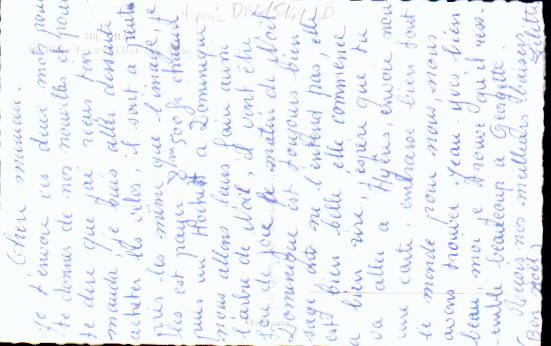 Chère maman.
Je t'envoie ces deux mot pour
te donner de nos nouvelles et pour
te dire que j'ai reçus ton
manda, je suis aller desuite
acheter les vélos, il sont a
pris les même que l'image, je
les est payer 500 f chacun
puis un Hochet a Dominique
nous allons leurs faire aussi
l'arbre de Noël, il vont être
fou de joie le matin de Noël
Dominique est toujours bien
sage on ne l'entend pas, elle
est bien belle elle commence
a bien rire, j'espère que tu
va aller a Hyères, envoie nous
une carte. embrasse bien tout
le monde pour nous, nous
avons trouver Jean-Yves bien
beau, moi je trouve qu'il ress-
emble beaucoup a Georgette.
Reçois nos meilleurs baisers
(Bon Noël)